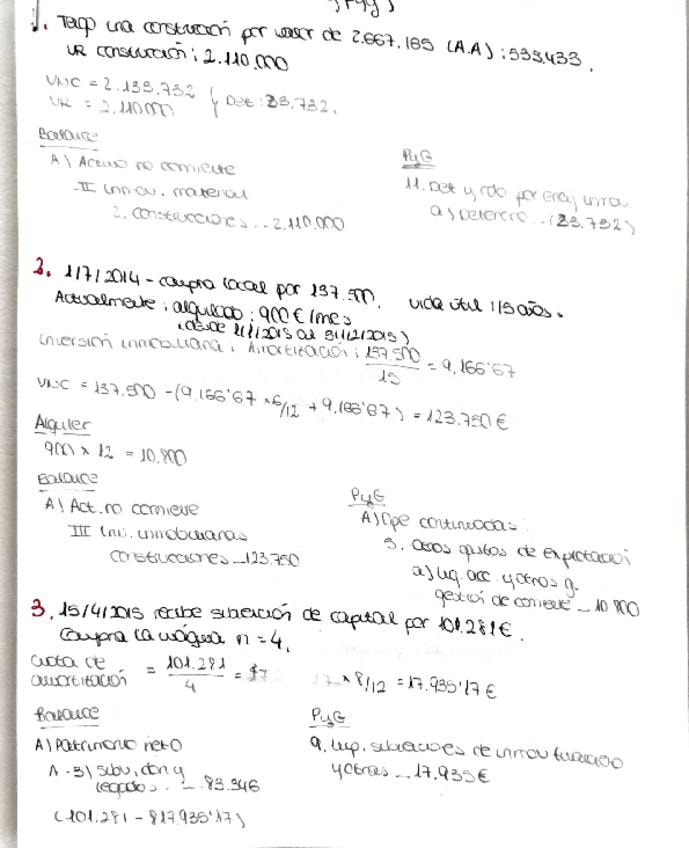 (PyG)
1. Tengo una construcción por valor de 2.667.165 (A.A) : 533.433.
VR construcción: 2.110.000
VNC = 2.133.732
VR = 2.110.000 } Det: 23.732.
Balance
A) Activo no corriente
II Inmov. material
2. Construcciones... 2.110.000
PyG
11. Det y rdo por enaj inmov.
a) Deterioro... (23.732)
2. 1/7/2014 - compra local por 137.500. Vida útil: 15 años.
Actualmente: alquilado: 900 €/mes
(desde 1/1/2015 al 31/12/2015)
Inversión inmobiliaria: Amortización: 137.500 / 15 = 9.166'67
VNC = 137.500 - (9.166'67 × 6/12 + 9.166'67) = 123.750 €
Alquiler
900 × 12 = 10.800
Balance
A) Act. no corriente
III Inv. inmobiliarias
Construcciones - 123.750
PyG
A) Ope continuadas:
5. Otros gastos de explotación
a) Ing. acc. y otros g.
gestión de corriente - 10.800
3. 15/4/2015 recibe subvención de capital por 101.281 €.
Compra la máquina n = 4.
Cuota de amortización = 101.281 / 4 =
× 8/12 = 17.935'17 €
Balance
A) Patrimonio neto
A-3) Subv, don y
legados. - 83.346
(101.281 - 817.935'17)
PyG
9. Imp. subvenciones de inmov financiero
y otras - 17.935 €